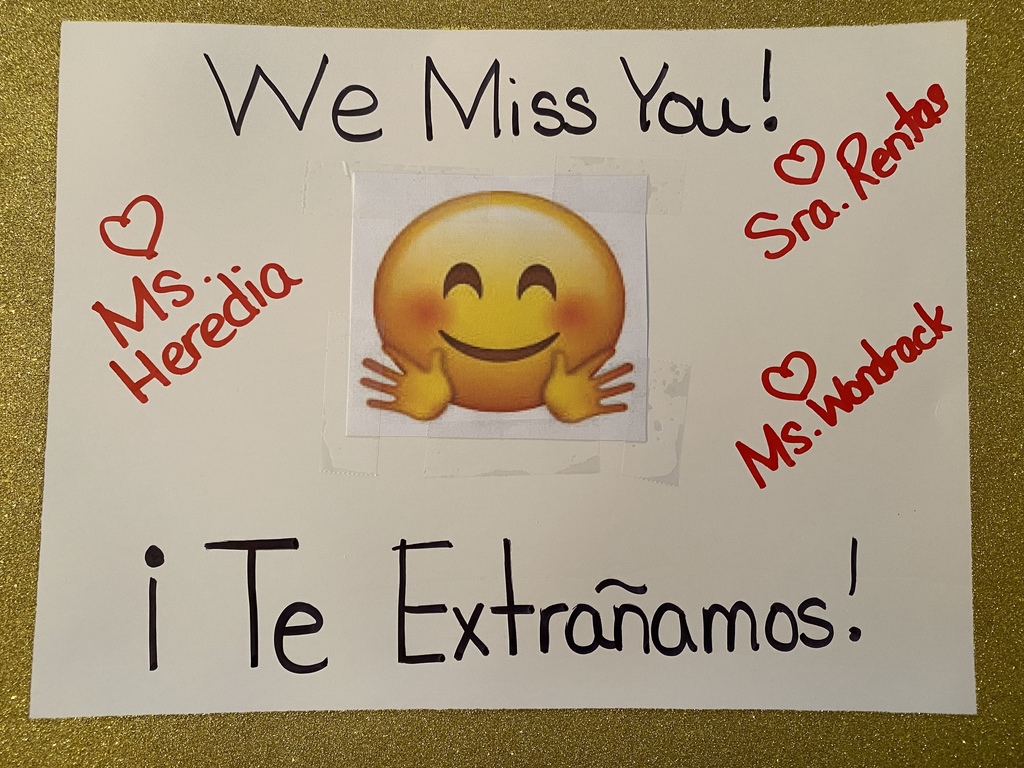 We Miss You!
Ms.
Heredia
Sra. Rentas
Ms. Wondrack
¡Te Extrañamos!